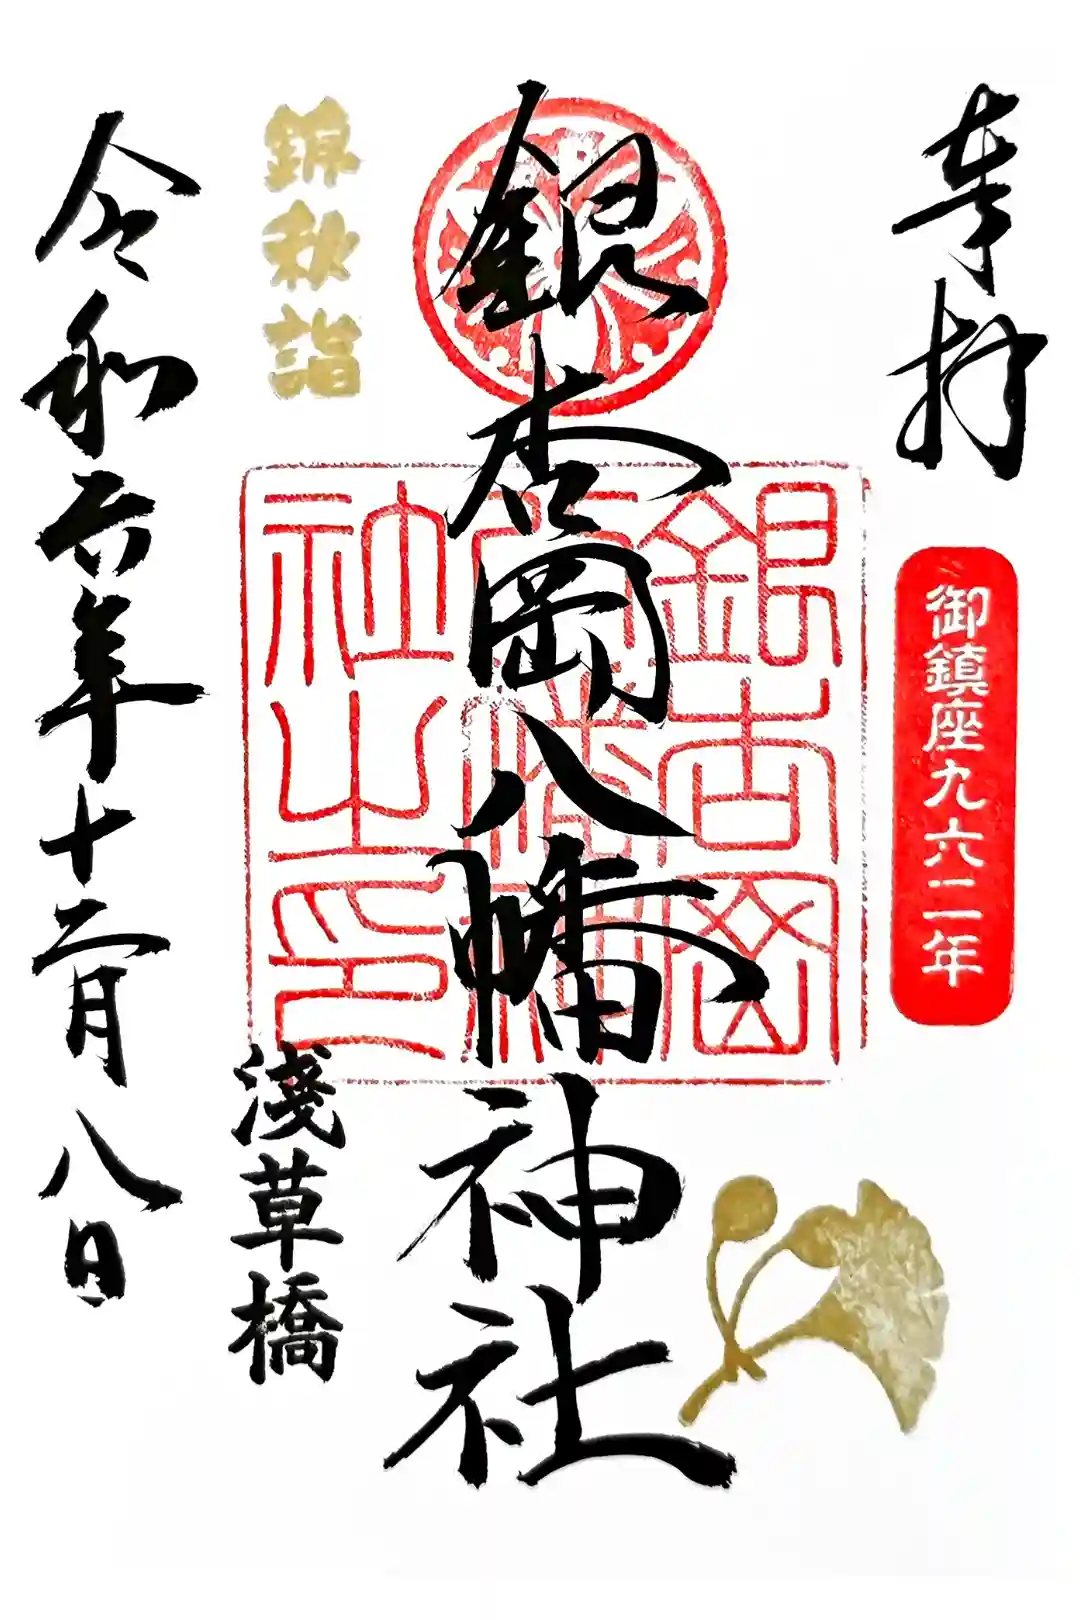 奉拝
御鎮座九六二年
銀杏岡八幡神社
銀杏岡八幡神社之印
錦秋詣
淺草橋
令和六年十二月八日